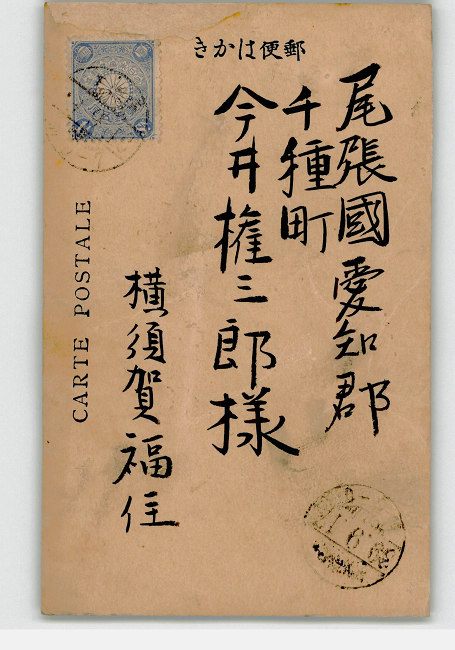 きかは便郵
尾張國愛知郡
千種町
今井権三郎様
横須賀福住
CARTE POSTALE